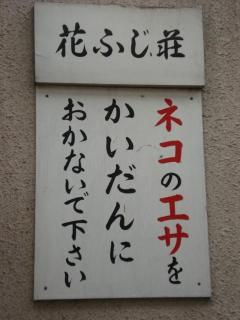 花ふじ荘
ネコのエサを
かいだんに
おかないで下さい